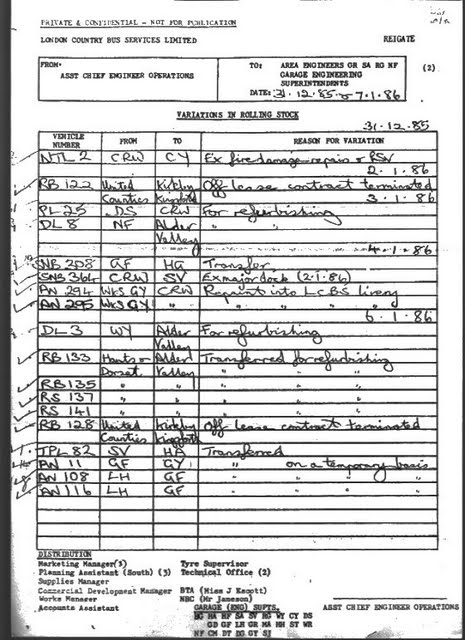 PRIVATE & CONFIDENTIAL - NOT FOR PUBLICATION
LONDON COUNTRY BUS SERVICES LIMITED REIGATE
FROM: TO: AREA ENGINEERS GR SA RG NF (2)
ASST CHIEF ENGINEER OPERATIONS GARAGE ENGINEERING
SUPERINTENDENTS
DATE: 31.12.85 & 7.1.86
VARIATIONS IN ROLLING STOCK
31-12-85
VEHICLE NUMBER FROM TO REASON FOR VARIATION
NTL 2 CRW CY Ex fire damage repair & RSV
2.1.86
RB 122 United Kirkby Off lease contract terminated
Counties Kingsford 3.1.86
PL 25 DS CRW For refurbishing
DL 8 NF Alder " "
Valley
4.1.86
SNB 208 GF HG Transfer
SNB 364 CRW SV Ex major dock (2.1.86)
AN 294 WKS GY CRW Repaint into LCBS livery
AN 295 WKS GY " " " "
6.1.86
DL 3 WY Alder For refurbishing
Valley
RB 133 Hants & Alder Transferred for refurbishing
Dorset Valley
RB 135 " " " "
RS 137 " " " "
RS 141 " " " "
RB 128 United Kirkby Off lease contract terminated
Counties Kingsforth
TPL 82 SV HA Transferred
AN 11 GF GY " on a temporary basis
AN 108 LH GF " " " "
AN 116 LH GF " " " "
DISTRIBUTION
Marketing Manager(3) Tyre Supervisor
Planning Assistant (South) (3) Technical Office (2)
Supplies Manager
Commercial Development Manager BTA (Miss J Escott)
Works Manager NBC (Mr Jameson)
Accounts Assistant GARAGE (ENG) SUPTS. ASST CHIEF ENGINEER OPERATIONS
HG HA HF SA SV RG WY CY DS
GD GF LH GR MA HH ST WR
NF CM DT DG GY SJ